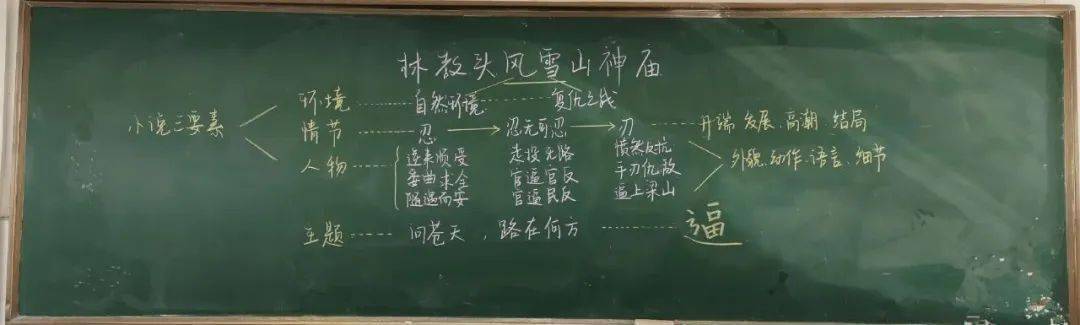 林教头风雪山神庙
小说三要素
环境 自然环境 复仇之战
情节 忍 忍无可忍 刃 开端 发展、高潮、结局
人物 逆来顺受 走投无路 愤然反抗 外貌、动作、语言、细节
委曲求全 官逼官反 手刃仇敌
随遇而安 官逼民反 逼上梁山
主题 问苍天，路在何方 逼